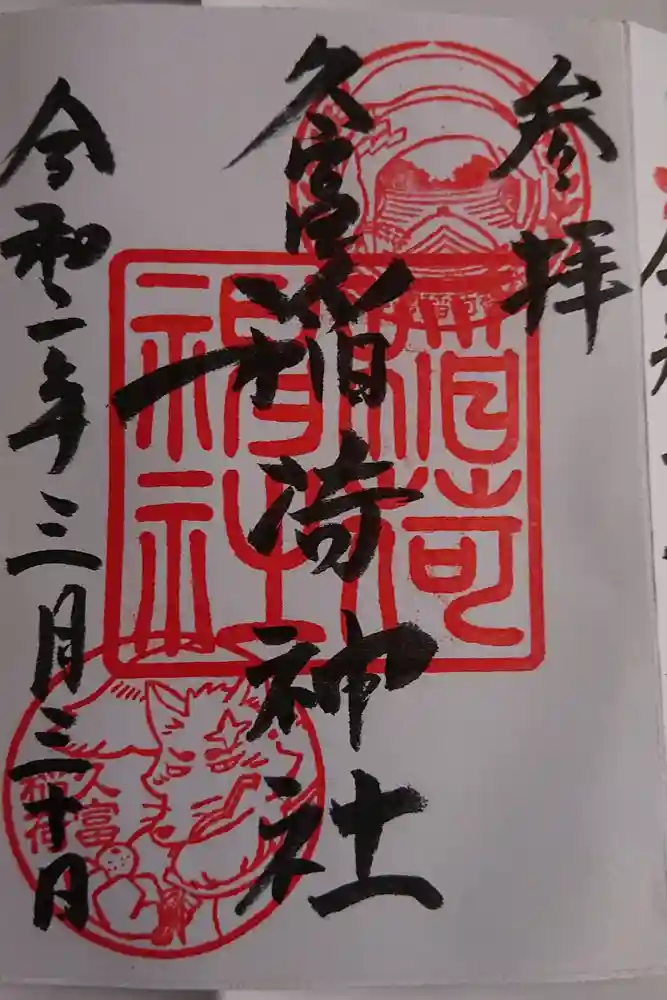 参拝
久富稲荷神社
令和二年三月三十日
稲荷
神社
久富
稲荷